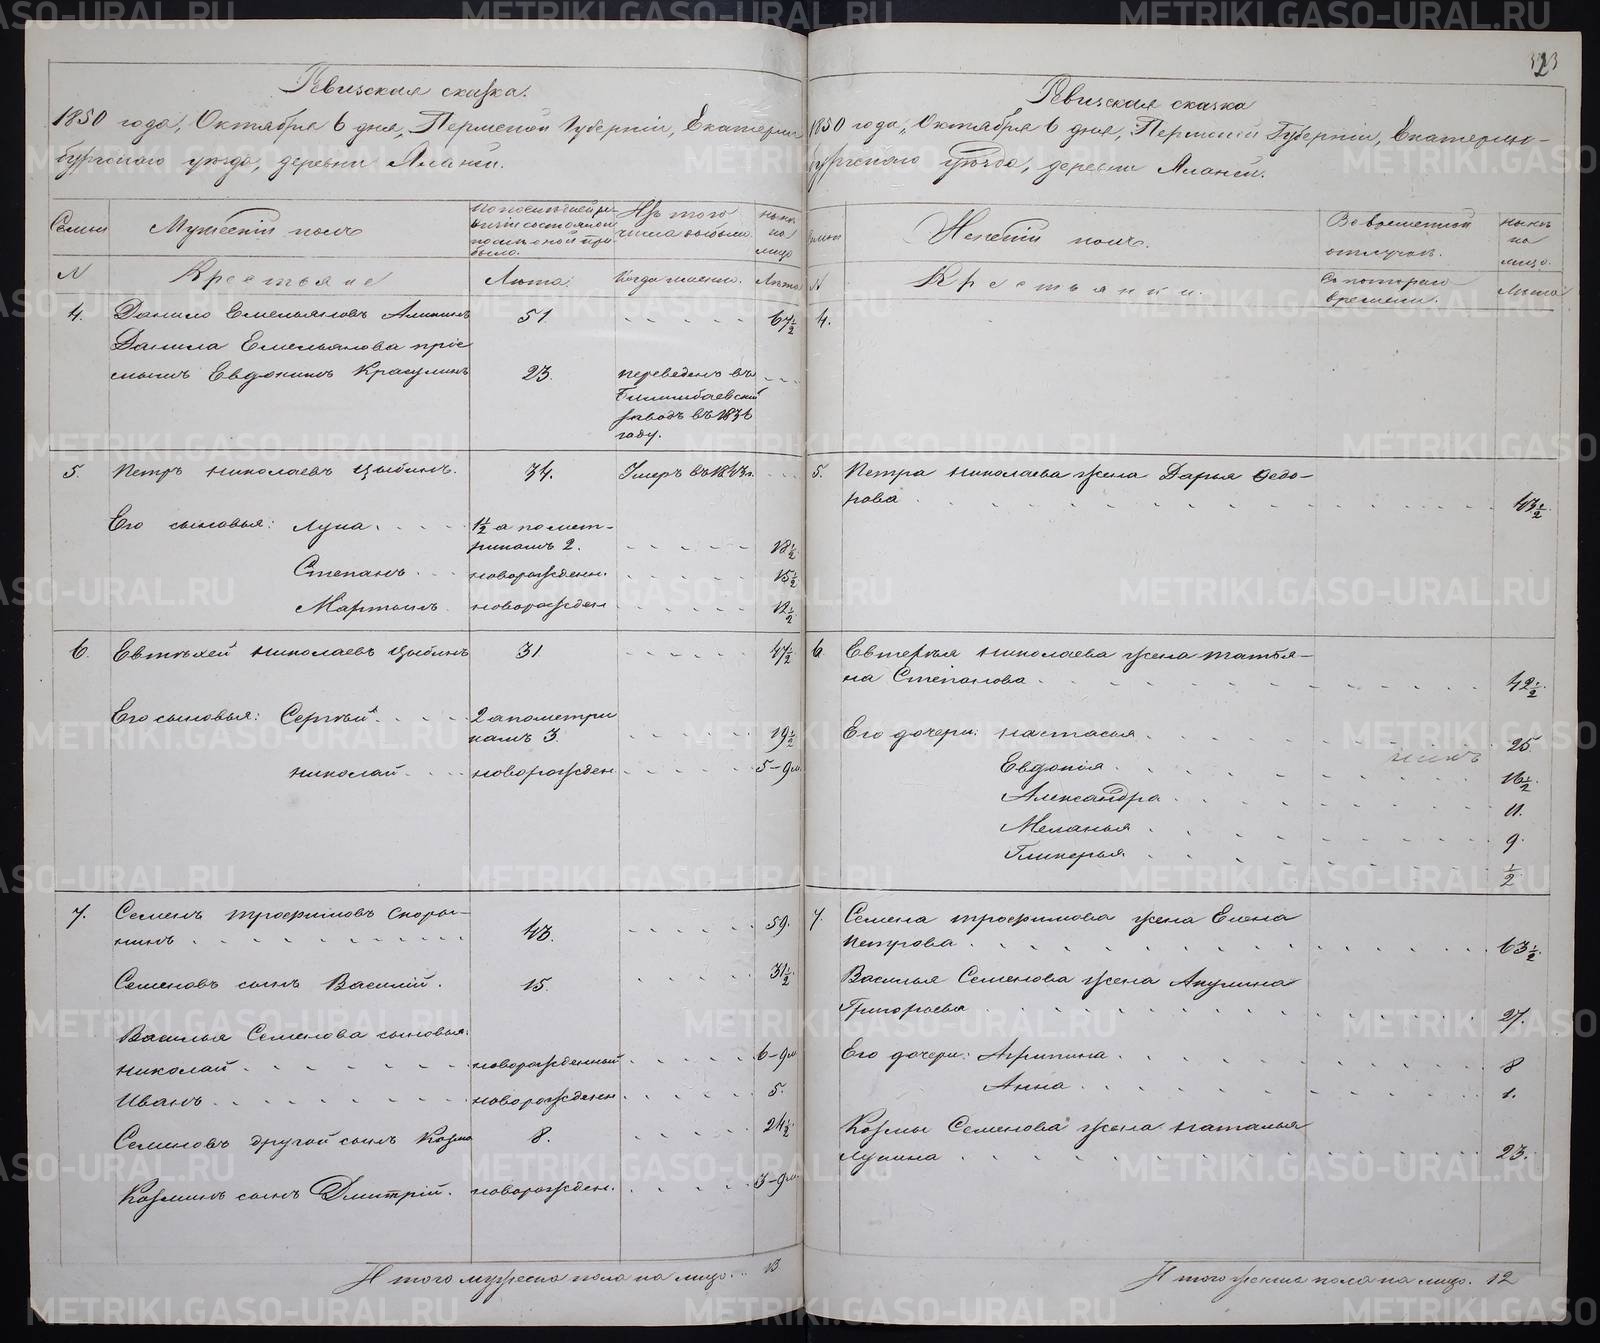 Ревизская сказка.
1850 года, Октября 6 дня, Пермской Губернiи, Екатерин
бургскаго уезда, деревни
Семьи
Мужескiй полъ
По последней ре-
визiи состояло и
после оной при-
было.
Изъ того
числа выбыло.
ныне
на
лицо
N
Крестьяне
Лета.
Когда именно.
Лета
4.
Данило Емельяновъ
51
67½
Данила Емельянова прiе
мышъ Евдокимъ Красулинъ
23.
переведенъ въ
Билимбаевскiй
заводъ въ 183
году.
5.
Петръ Николаевъ Цыбинъ.
34.
Умеръ въ 1843 г.
Его сыновья: Лука
1½ а по мет-
рикамъ 2.
18½
Степанъ
новорожденн.
15½
Мартынъ
новорожден
12½
6
Евтихей Николаевъ Цыбинъ
31
47½
Его сыновья: Сергей
2 а по метри
камъ 3.
19½
Николай
новорожден
5-9м
7.
Семенъ Трофимовъ Скоры-
нинъ
43.
59.
Семеновъ сынъ Василiй.
15.
31½
Василья Семенова сыновья:
Николай
новорожденный
6-9м
Иванъ
новорожденн
5.
Семеновъ другой сынъ Козма
8.
24½
Козминъ сынъ Дмитрiй.
новорожден.
3-9м.
Итого мужеска пола на лицо. 13
Ревизская сказка
1850 года, Октября 6 дня, Пермской Губернiи, Екатерин-
бургскаго уезда, деревни
Семьи
Женскiй полъ.
Во временной
отлучке.
ныне
на
лицо.
N
Крестьянки.
Съ котораго
времени.
Лета
4.
5.
Петра Николаева жена Дарья Федо-
рова
43½
6
Евтехея Николаева жена Татья-
на Степанова
42½
Его дочери: Настасья
25
Евдокiя
16½
Александра
11.
Меланья
9.
Гликерья
½
7.
Семена Трофимова жена Елена
Петрова
63½
Василья Семенова жена Акулина
Григорьева
27.
Его дочери: Агрипина
8
Анна
1.
Козмы Семенова жена Наталья
Лукина
23.
Итого женска пола на лицо. 12
METRIKI.GASO-URAL.RU